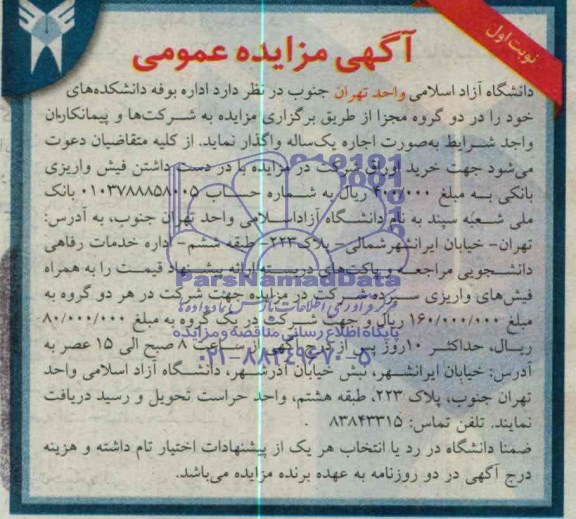 نوبت اول
آگهی مزایده عمومی
دانشگاه آزاد اسلامی واحد تهران جنوب در نظر دارد اداره بوفه دانشکده‌های
خود را در دو گروه مجزا از طریق برگزاری مزایده به شرکت‌ها و پیمانکاران
واجد شرایط به‌صورت اجاره یک‌ساله واگذار نماید. از کلیه متقاضیان دعوت
می‌شود جهت خرید اوراق شرکت در مزایده با در دست داشتن فیش واریزی
بانکی به مبلغ ۴۰۰/۰۰۰ ریال به شماره حساب ۰۱۰۳۷۸۸۸۵۸۰۰۵ بانک
ملی شعبه سپند به نام دانشگاه آزاداسلامی واحد تهران جنوب، به آدرس:
تهران- خیابان ایرانشهرشمالی- پلاک۲۲۳- طبقه ششم- اداره خدمات رفاهی
دانشجویی مراجعه و پاکت‌های دربسته ارائه پیشنهاد قیمت را به همراه
ParsNamadData
فیش‌های واریزی سپرده شرکت در مزایده جهت شرکت در هر دو گروه به
مبلغ ۱۶۰/۰۰۰/۰۰۰ ریال و جهت شرکت در یک گروه به مبلغ ۸۰/۰۰۰/۰۰۰
پایگاه اطلاع رسانی مناقصه و مزایده
ریال، حداکثر ۱۰روز پس از درج آگهی از ساعت ۸ صبح الی ۱۵ عصر به
۰۲۱-۸۸۳۴۹۶۷۰-۵
آدرس: خیابان ایرانشهر، نبش خیابان آذرشهر، دانشگاه آزاد اسلامی واحد
تهران جنوب، پلاک ۲۲۳، طبقه هشتم، واحد حراست تحویل و رسید دریافت
نمایند. تلفن تماس: ۸۳۸۴۳۳۱۵ .
ضمنا دانشگاه در رد یا انتخاب هر یک از پیشنهادات اختیار تام داشته و هزینه
درج آگهی در دو روزنامه به عهده برنده مزایده می‌باشد.